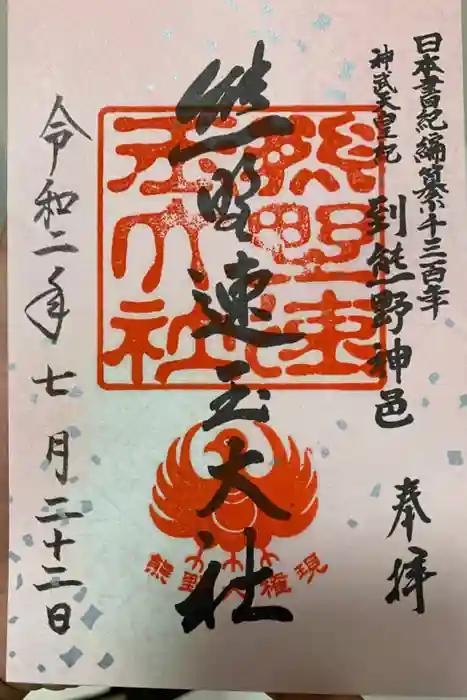 日本書紀編纂千三百年
神武天皇紀
到熊野神邑
奉拝
熊野速玉大社
熊野速玉大社
熊野大権現
令和二年七月二十二日